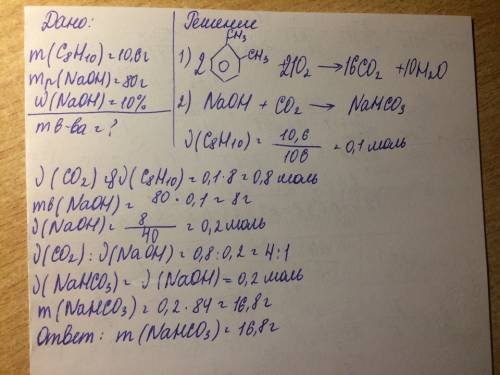 Дано:
m(C8H10)=10,6г
mр(NaOH)=80г
ω(NaOH)=10%
m в-ва=?
Решение
CH3
CH3
1) 2 21O2 → 16CO2 + 10H2O
2) NaOH + CO2 → NaHCO3
ν(C8H10)= 10,6/106 = 0,1 моль
ν(CO2)=8ν(C8H10)=0,1·8=0,8 моль
mв(NaOH)= 80·0,1=8г
ν(NaOH)= 8/40 = 0,2 моль
ν(CO2):ν(NaOH)=0,8:0,2=4:1
ν(NaHCO3)=ν(NaOH)=0,2 моль
m(NaHCO3)=0,2·84=16,8г
Ответ: m(NaHCO3)=16,8г